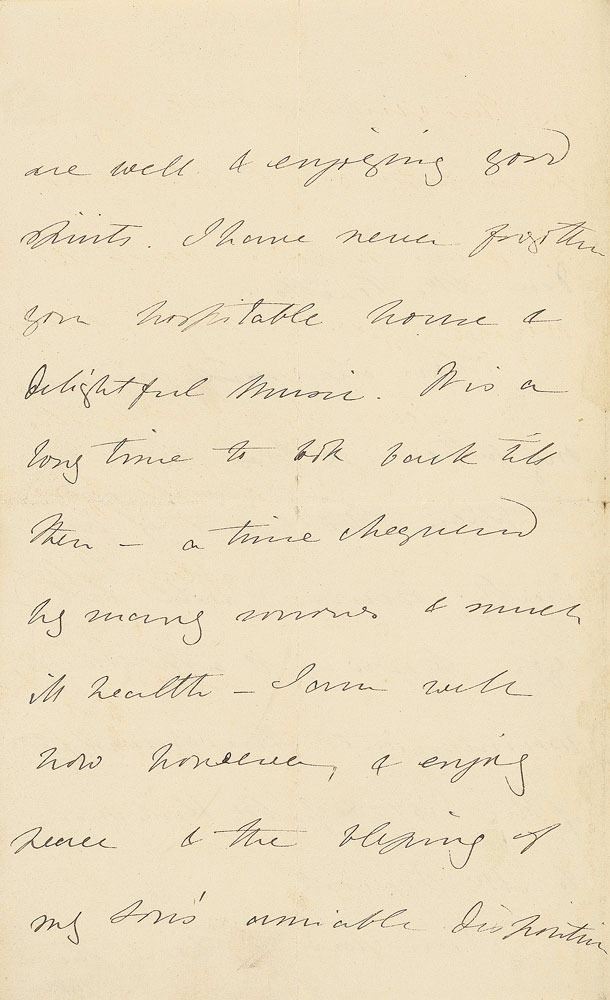 are well & enjoying good
spirits. I have never forgotten
your hospitable house &
delightful music. It is a
long time to look back till
then – a time chequered
by many sorrows & much
ill health – I am well
now however, & enjoy
peace & the blessing of
my son's amiable disposition